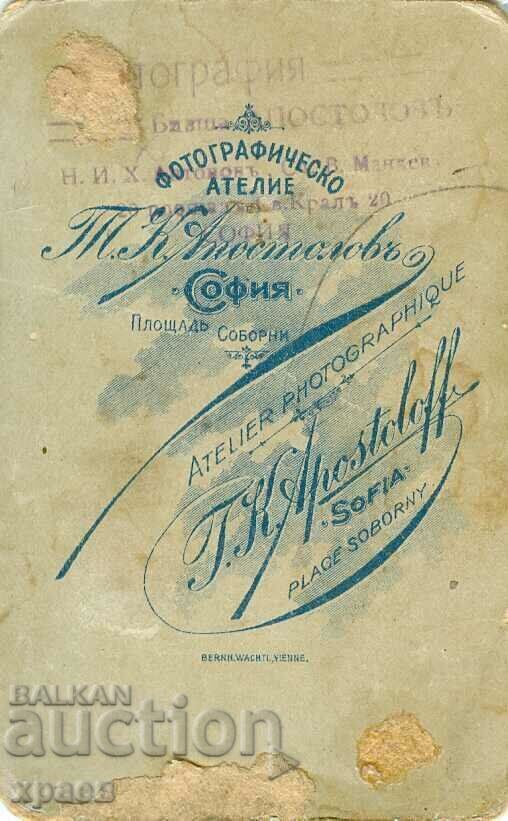 Бивша АПОСТОЛОВЪ
Н. И. Х.
Св. Кралъ 20
СОФИЯ
ФОТОГРАФИЧЕСКО
АТЕЛИЕ
Т. К. Апостоловъ
СОФИЯ
ПЛОЩАДЬ СОБОРНИ
ATELIER PHOTOGRAPHIQUE
T. K. Apostoloff
SOFIA
PLACE SOBORNY
BERNH. WACHTL, VIENNE.
BALKAN
auction
xpaes